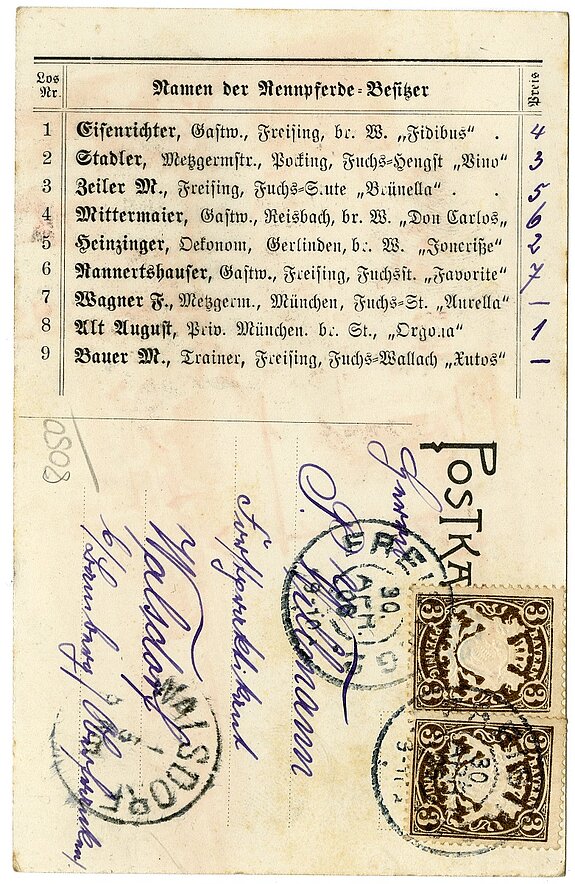 Los Nr.
Namen der Rennpferde-Besitzer
Preis
1 Eisenrichter, Gastw., Freising, br. W. „Fidibus" . 4
2 Stadler, Metzgermstr., Pocking, Fuchs-Hengst „Vino" 3
3 Zeiler M., Freising, Fuchs-Stute „Brünella" . . 5
4 Mittermaier, Gastw., Reisbach, br. W. „Don Carlos„ 6
5 Heinzinger, Oekonom, Gerlinden, br. W. 2
6 Rannertshauser, Gastw., Freising, Fuchsst. „Favorite" 7
7 Wagner F., Metzgerm., München, Fuchs-St. „Aurella" –
8 Alt August, Priv. München. br. St., 1
9 Bauer M., Trainer, Freising, Fuchs-Wallach „Xutos" –
0508
POSTKA
Herrn
Forstpraktikant
Walsdorf
b/Bamberg/Oberfranken/
FREI G
30. APR. 06
9-10
WALSDORF
3 BAYERN 3
30. APR.
3 BAYERN 3